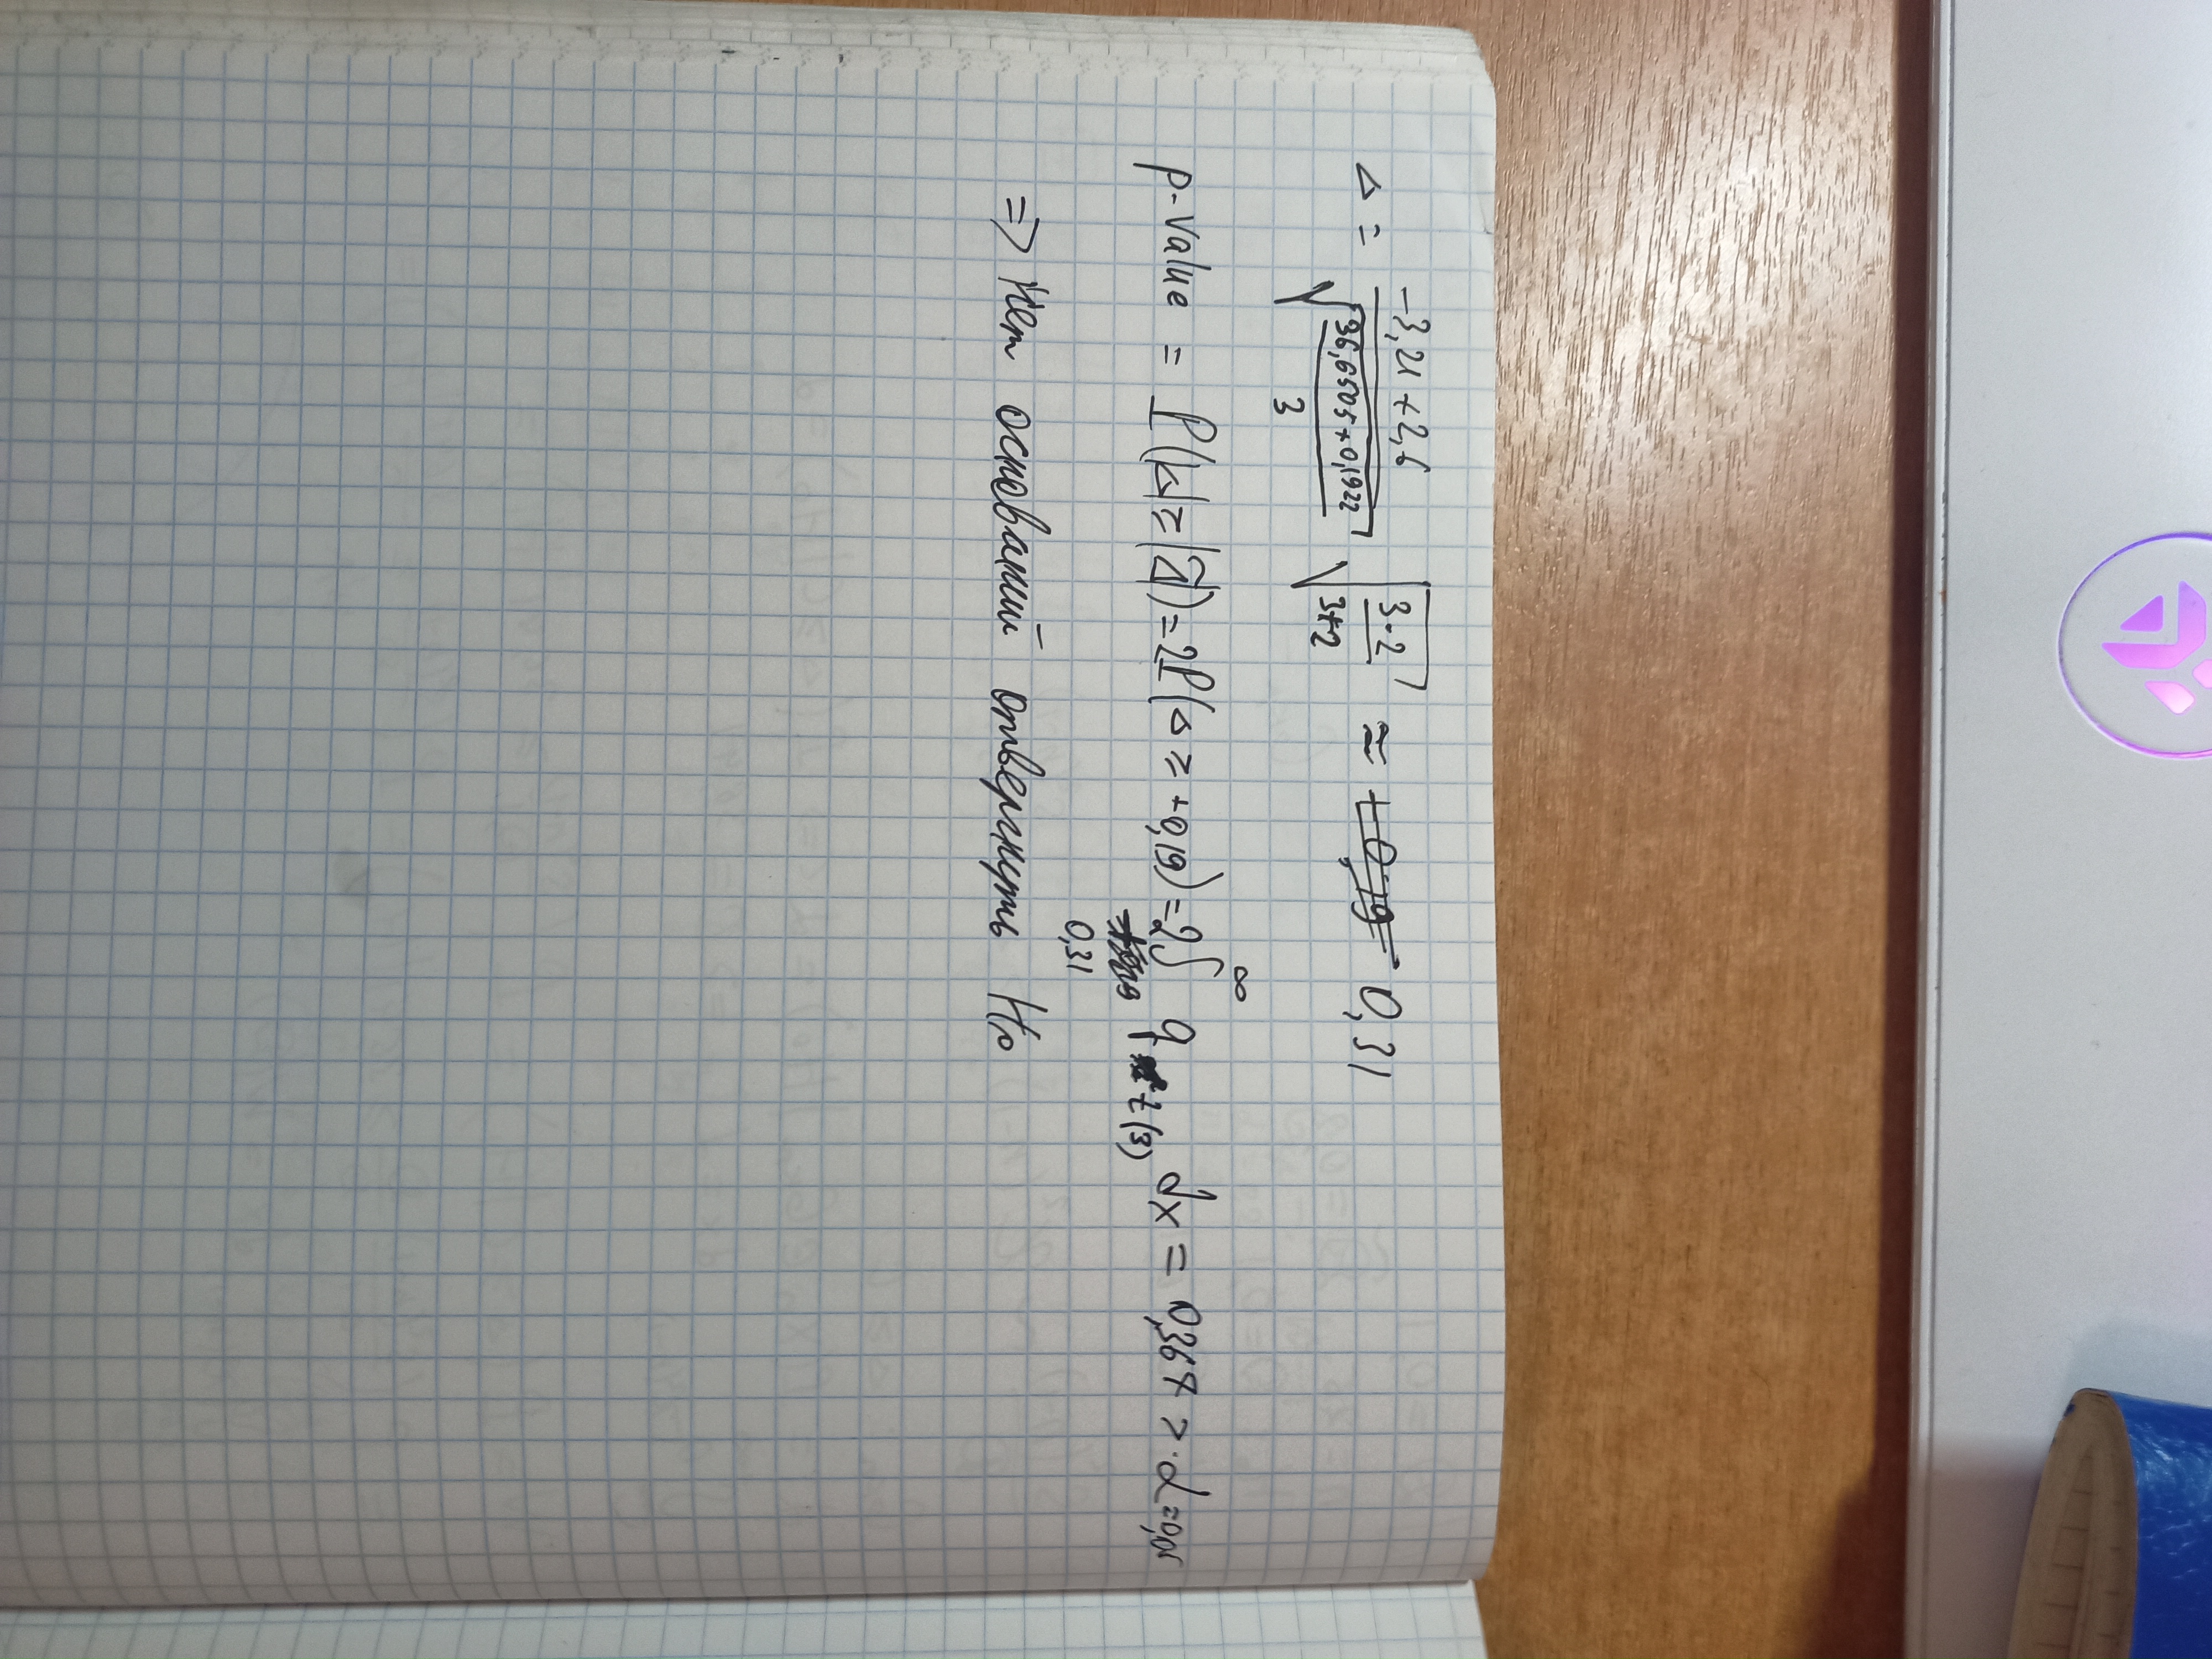 Δ = (-3,21 + 2,6) / √((36,6505 + 0,1922) / 3) √((3·2) / (3+2)) ≈ 0,31
p-value = P(|Δ| ≥ |Δ̃|) = 2P(Δ ≥ +0,19) = 2∫_{0,31}^{∞} q_{t(3)} dx = 0,367 > α = 0,05
⇒ Нет оснований отвергнуть H₀